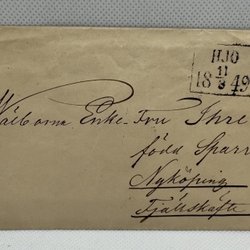 HJO
11
18 8 49
Wälborna Enke-Fru Ihre
född Sparr
Nyköping
Fjällskäfte